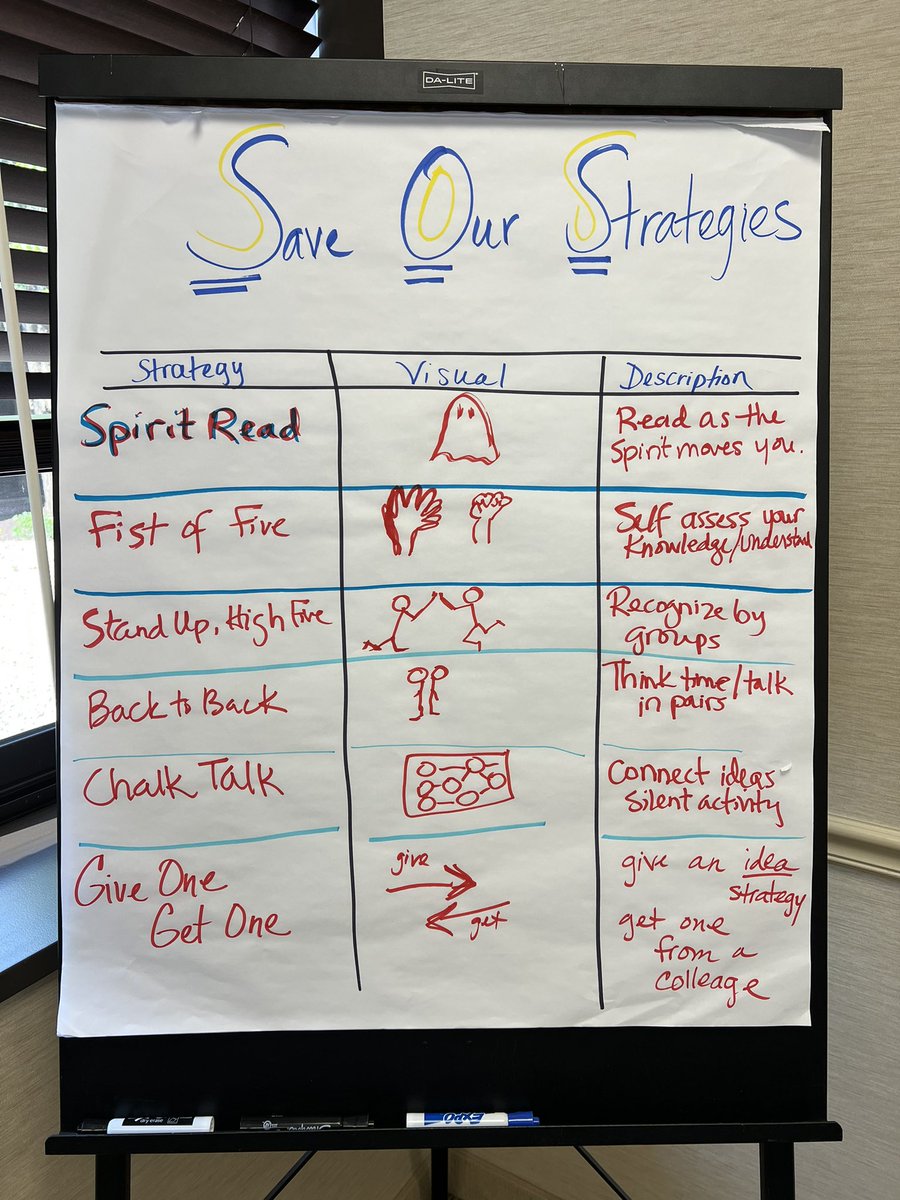 DA-LITE
Save Our Strategies
Strategy Visual Description
Spirit Read
Read as the
Spirit moves you.
Fist of Five
Self assess your
Knowledge/Understand
Stand Up, High Five
Recognize by
groups
Back to Back
Think time/talk
in pairs
Chalk Talk
Connect ideas
Silent activity
Give One
Get One
give
get
give an idea
strategy
get one
from a
colleage
EXPO